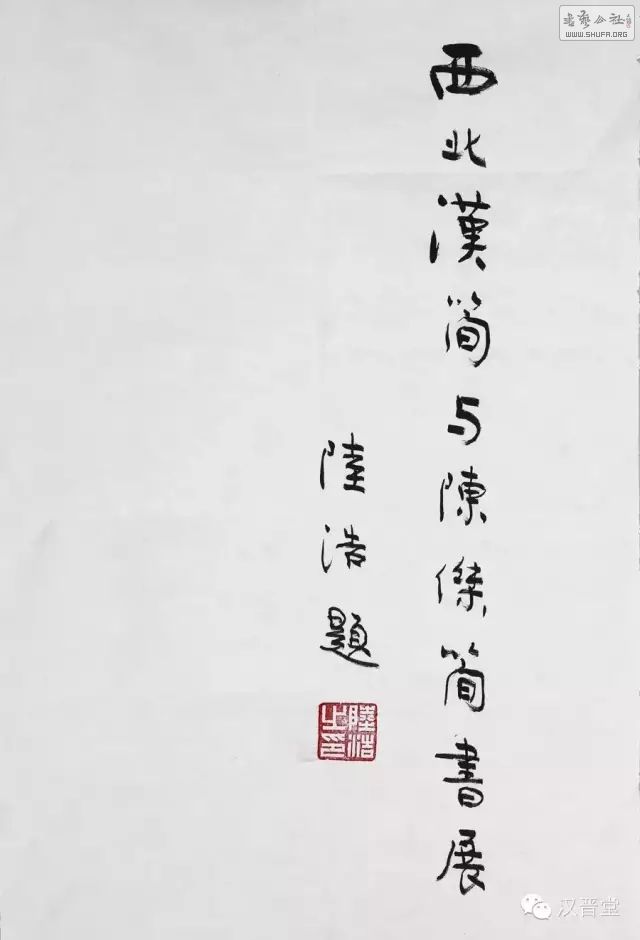 西北漢简与陳傑简書展
陸浩題
陸浩之印
書藝公社
WWW.SHUFA.ORG
汉晋堂